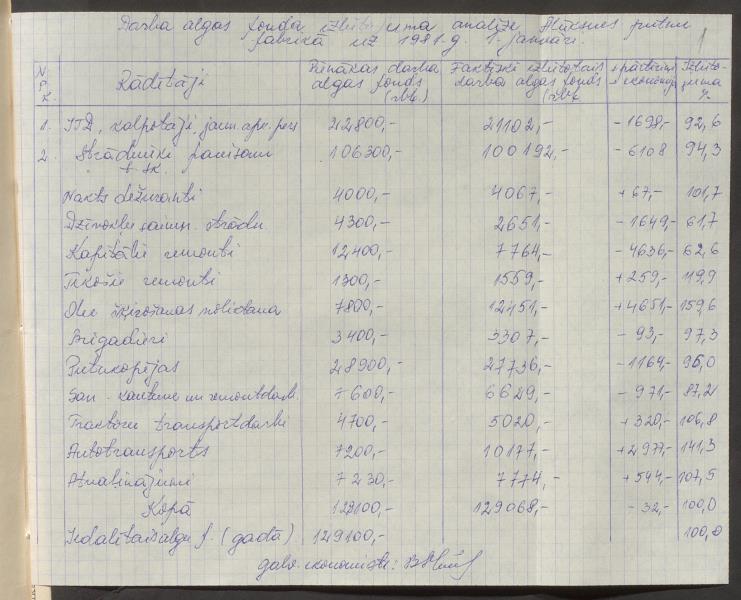 Darba algas fonda izlietojuma analīze Alūksnes putnu
fabrikā uz 1981.g. 1. janvāri.
1
N. P. K. Rādītāji Pienākas darba algas fonds (rbļ.) Faktiski izlietotais darba algas fonds (rbļ. + pārtēriņš - ekonomija Izlieto- juma %
1. ITD, kalpotāji, jaun. apk. pers 22800,- 21102,- -1698,- 92,6
2. Strādnieki pavisam 106300,- 100192,- -6108 94,3
t. sk.
Nakts dežuranti 4000,- 4067,- +67,- 101,7
Dzīvokļu saimn. strādn. 4300,- 2651,- -1649,- 61,7
Kapitālie remonti 12400,- 7764,- -4636,- 62,6
Tekošie remonti 1300,- 1559,- +259,- 119,9
Olu šķirošanas noliktava 7800,- 12451,- +4651,- 159,6
Brigadieri 3400,- 3307,- -93,- 97,3
Putnkopējas 28900,- 27736,- -1164,- 96,0
San. kautuve un remontdarb. 7600,- 6629,- -971,- 87,2
Traktoru transportdarbi 4700,- 5020,- +320,- 106,8
Autotransports 7200,- 10177,- +2977,- 141,3
Atvaļinājumi 7230,- 7774,- +544,- 107,5
Kopā 129100,- 129068,- -32,- 100,0
Iedalītais algu f. (gadā) 129100,- 100,0
galv. ekonomiste: